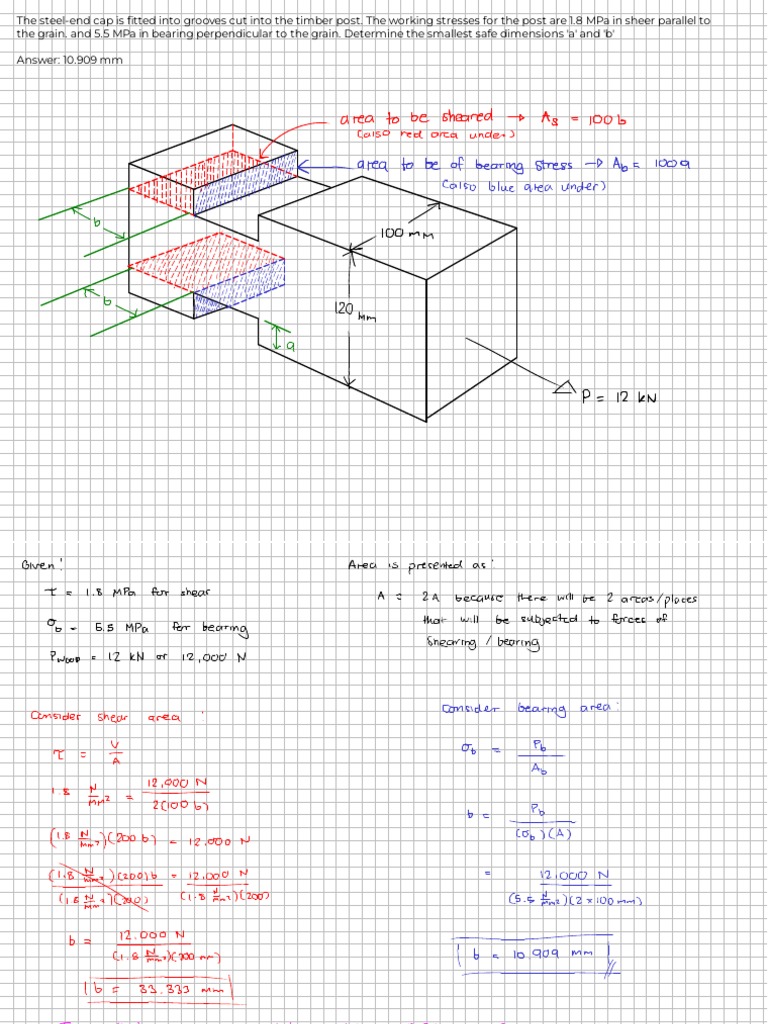 The steel-end cap is fitted into grooves cut into the timber post. The working stresses for the post are 1.8 MPa in sheer parallel to
the grain. and 5.5 MPa in bearing perpendicular to the grain. Determine the smallest safe dimensions 'a' and 'b'
Answer: 10.909 mm
area to be sheared → As = 100 b
(also red area under)
area to be of bearing stress → Ab = 100 a
(also blue area under)
b
100 mm
b
120 mm
a
P = 12 kN
Given:
τ = 1.8 MPa for shear
σb = 5.5 MPa for bearing
Pwood = 12 kN or 12,000 N
Area is presented as:
A = 2A because there will be 2 areas/places
that will be subjected to forces of
shearing / bearing
Consider shear area :
τ = V/A
1.8 N/mm² = 12,000 N / 2(100 b)
(1.8 N/mm²)(200 b) = 12,000 N
(1.8 N/mm²)(200)b / (1.8 N/mm²)(200) = 12,000 N / (1.8 N/mm²)(200)
b = 12,000 N / (1.8 N/mm²)(200 mm)
b = 33.333 mm
Consider bearing area:
σb = Pb / Ab
b = Pb / (σb)(A)
= 12,000 N / (5.5 N/mm²)(2 × 100 mm)
b = 10.909 mm